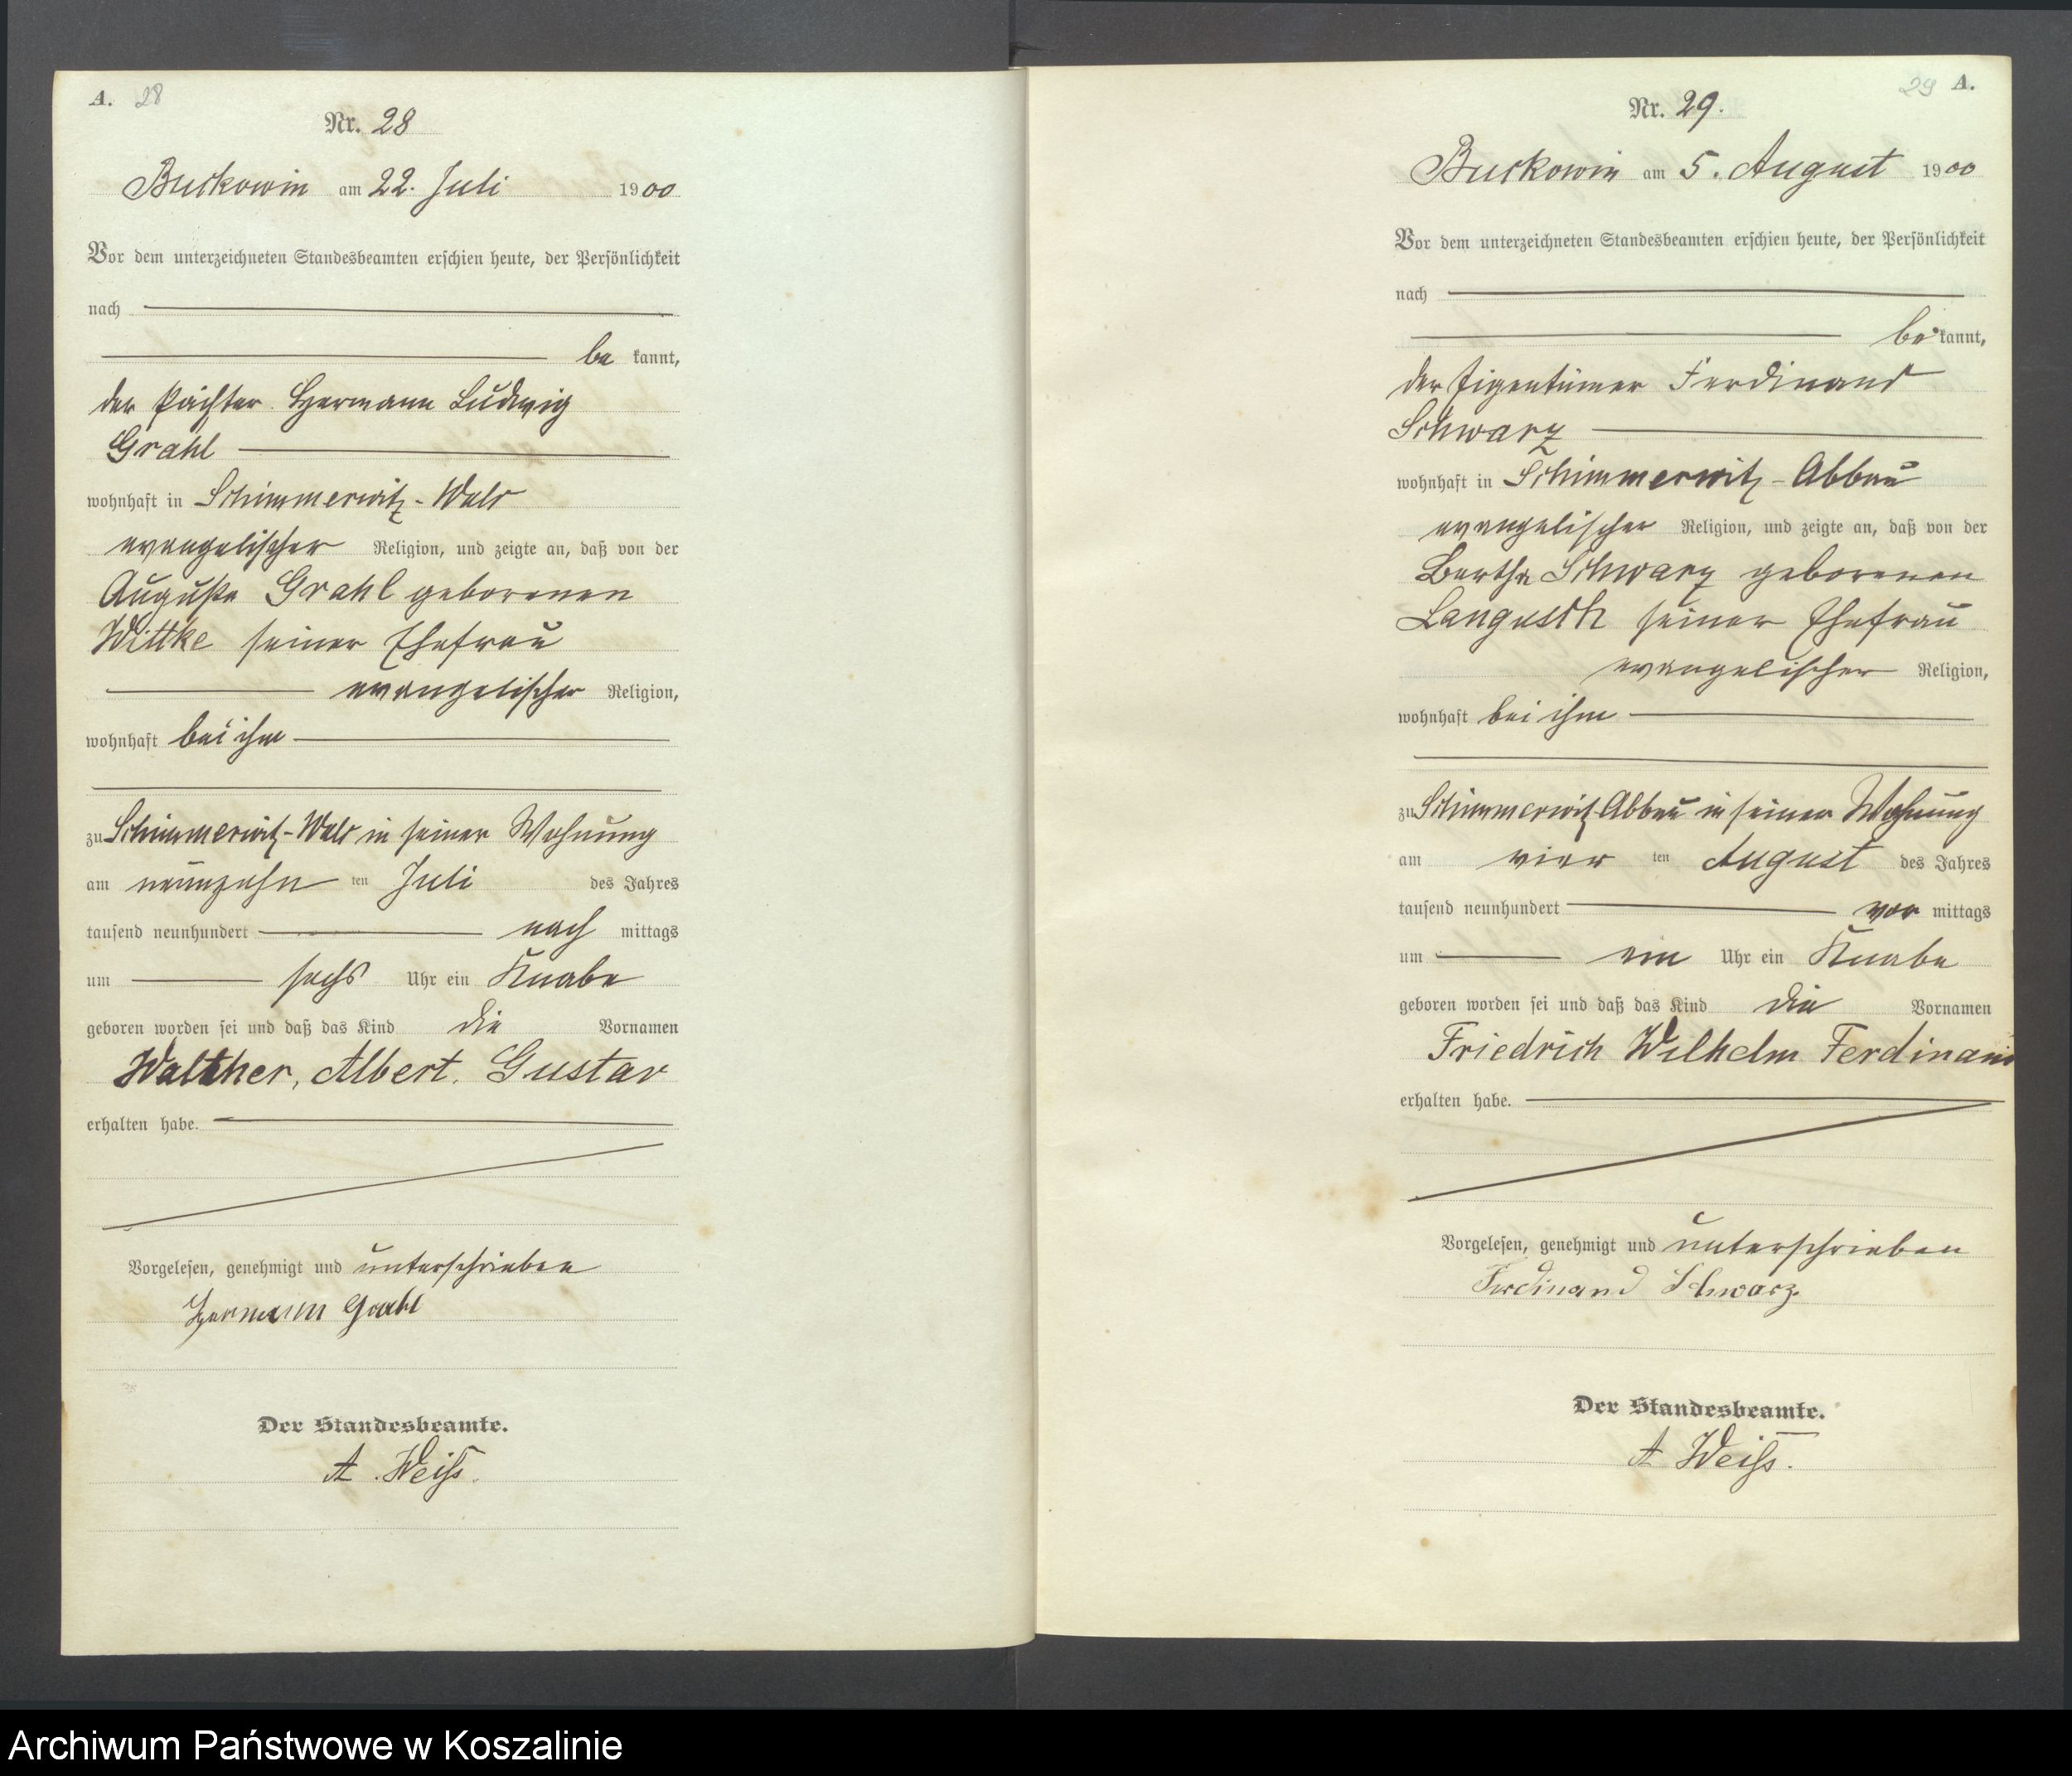 A. 28
Nr. 28
Buckowin am 22. Juli 1900
Vor dem unterzeichneten Standesbeamten erschien heute, der Persönlichkeit
nach
be kannt,
der Pächter Hermann Ludwig
Grahl
wohnhaft in Schimmerwitz-Wald
evangelischer Religion, und zeigte an, daß von der
Auguste Grahl geborenen
Wittke seiner Ehefrau
evangelischer Religion,
wohnhaft bei ihm
zu Schimmerwitz-Wald in seiner Wohnung
am neunzehn ten Juli des Jahres
tausend neunhundert nach mittags
um sechs Uhr ein Knabe
geboren worden sei und daß das Kind die Vornamen
Walther, Albert. Gustav
erhalten habe.
Vorgelesen, genehmigt und unterschrieben
Hermann Grahl
Der Standesbeamte.
A. Weiß.
29 A.
Nr. 29.
Buckowin am 5. August 1900
Vor dem unterzeichneten Standesbeamten erschien heute, der Persönlichkeit
nach
be kannt,
der Eigentümer Ferdinand
Schwarz
wohnhaft in Schimmerwitz-Abbau
evangelischer Religion, und zeigte an, daß von der
Bertha Schwarz geborenen
Langusch seiner Ehefrau
evangelischer Religion,
wohnhaft bei ihm
zu Schimmerwitz-Abbau in seiner Wohnung
am vier ten August des Jahres
tausend neunhundert vor mittags
um ein Uhr ein Knabe
geboren worden sei und daß das Kind die Vornamen
Friedrich Wilhelm Ferdinand
erhalten habe.
Vorgelesen, genehmigt und unterschrieben
Ferdinand Schwarz.
Der Standesbeamte.
A Weiß.
Archiwum Państwowe w Koszalinie